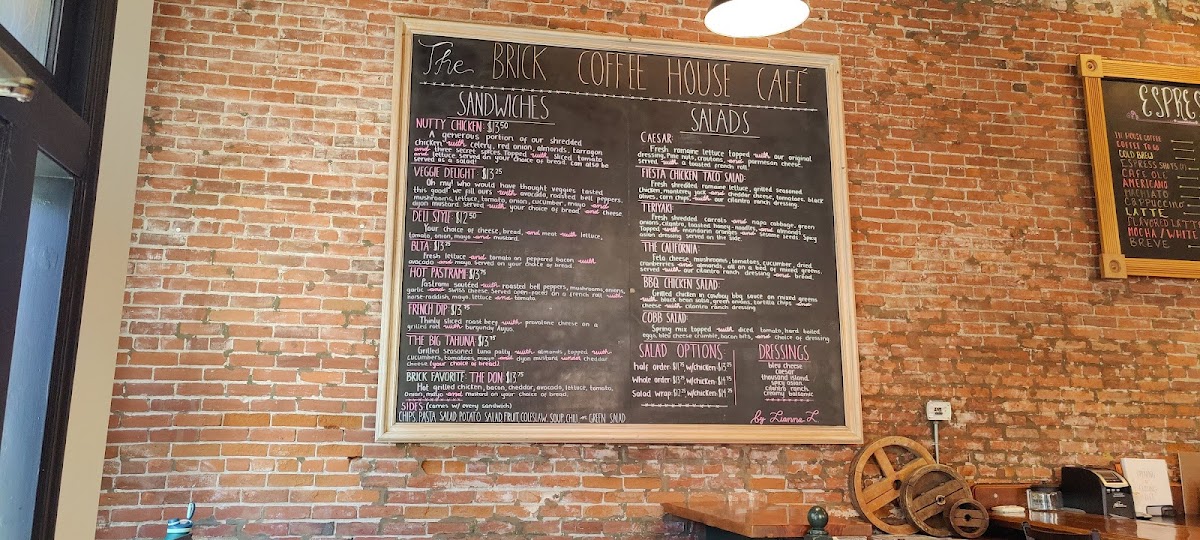 The BRICK COFFEE HOUSE CAFÉ
SANDWICHES
NUTTY CHICKEN: $13.50
A generous portion of our shredded
chicken with celery, red onion, almonds, tarragon
and three secret spices. Topped with sliced tomato
and lettuce served on your choice of bread. Can also be
served as a salad!
VEGGIE DELIGHT: $13.25
Oh my! who would have thought veggies tasted
this good? we fill ours with avocado, roasted bell peppers,
mushrooms, lettuce, tomato, onion, cucumber, mayo and
dijon mustard. served with your choice of bread and cheese
DELI STYLE: $12.50
Your choice of cheese, bread, and meat with lettuce,
tomato, onion, mayo and mustard.
BLTA $13.25
Fresh lettuce and tomato on peppered bacon with
avocado and mayo, served on your choice of bread.
HOT PASTRAMI: $13.75
Pastrami sautéed with roasted bell peppers, mushrooms, onions,
garlic and swiss cheese. Served open-faced on a french roll with
horse-raddish, mayo, lettuce and tomato.
FRENCH DIP $13.75
Thinly sliced roast beef with provolone cheese on a
grilled roll with burgundy Aujus.
THE BIG TAHUNA $13.75
Grilled seasoned tuna patty with almonds, topped with
cucumbers, tomatoes, mayo and dijon mustard under cheddar
cheese (your choice of bread)
BRICK FAVORITE: THE DON $13.75
Hot grilled chicken, bacon, cheddar, avocado, lettuce, tomato,
onion, mayo and mustard on your choice of bread.
SIDES (comes w/ every sandwich)
CHIPS, PASTA SALAD, POTATO SALAD, FRUIT, COLESLAW, SOUP, CHILI or GREEN SALAD
SALADS
CAESAR:
Fresh romaine lettuce topped with our original
dressing, pine nuts, croutons, and parmesan cheese.
served with a toasted french roll.
FIESTA CHICKEN TACO SALAD:
Fresh shredded romaine lettuce, grilled seasoned
chicken, monterey jack and cheddar cheese, tomatoes, black
olives, corn chips, with our cilantro ranch dressing
TERIYAKI:
Fresh shredded carrots and napa cabbage, green
onions, cilantro, toasted honey-noodles, and almonds,
Topped with mandarin oranges and sesame seeds. Spicy
asian dressing served on the side.
THE CALIFORNIA:
Feta cheese, mushrooms, tomatoes, cucumber, dried
cranberries and almonds, all on a bed of mixed greens.
served with our cilantro ranch dressing and bread
BBQ CHICKEN SALAD:
Grilled chicken in cowboy bbq sauce on mixed greens
with black bean salsa, green onions, tortilla chips and
cheese with cilantro ranch dressing
COBB SALAD:
Spring mix topped with diced tomato, hard boiled
eggs, bleu cheese crumble, bacon bits, and choice of dressing
SALAD OPTIONS
half order: w/chicken:
Whole order: w/chicken:
Salad wrap: w/chicken:
DRESSINGS
bleu cheese
caesar
thousand island
spicy asian
cilantro ranch
creamy balsamic
by Lianna L.
ESPRE
COFFEE TO GO
COLD BREW
ESPRESS SHOTS
CAFE OLE
AMERICANO
MACHIATO
CAPPUCCINO
LATTE
FLAVORED LATTE
MOCHA/WHITE
BREVE